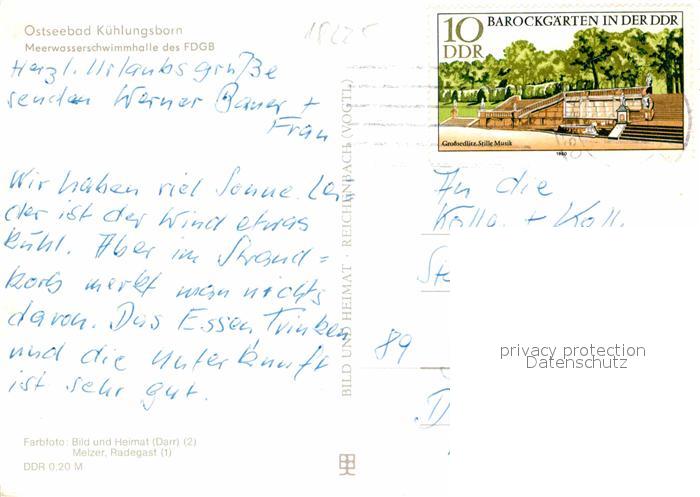 Ostseebad Kühlungsborn
Meerwasserschwimmhalle des FDGB
Herzl. Urlaubsgrüße
senden Werner Bauer +
Frau
Wir haben viel Sonne. Lei
der ist der Wind etwas
kühl. Aber im Strand=
korb merkt man nichts
davon. Das Essen Trinken
und die Unterkunft
ist sehr gut.
Farbfoto: Bild und Heimat (Darr) (2)
Melzer, Radegast (1)
DDR 0,20 M
BILD UND HEIMAT · REICHENBACH (VOGTL)
10
DDR
BAROCKGÄRTEN IN DER DDR
Großsedlitz. Stille Musik
1980
An die
+ Koll.
89
privacy protection
Datenschutz